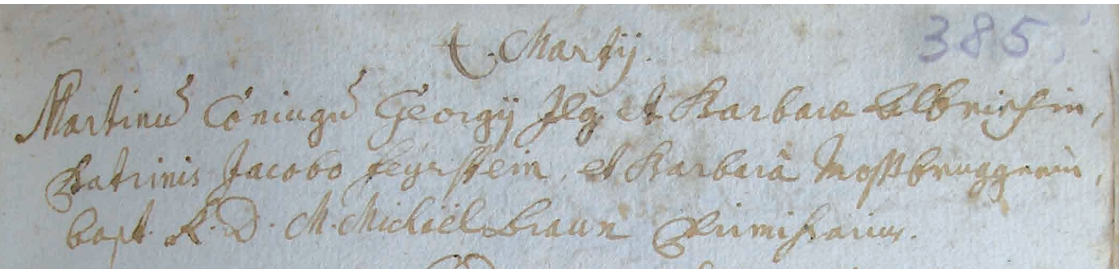 t. Martij. 385.
Martinus Coniugum Georgij Ilg et Barbara Albrichin,
Patrinis Jacobo Feÿrstein, et Barbara Moßbruggerin,
bapt. R. D. M. Michaël Braun Primissarius.